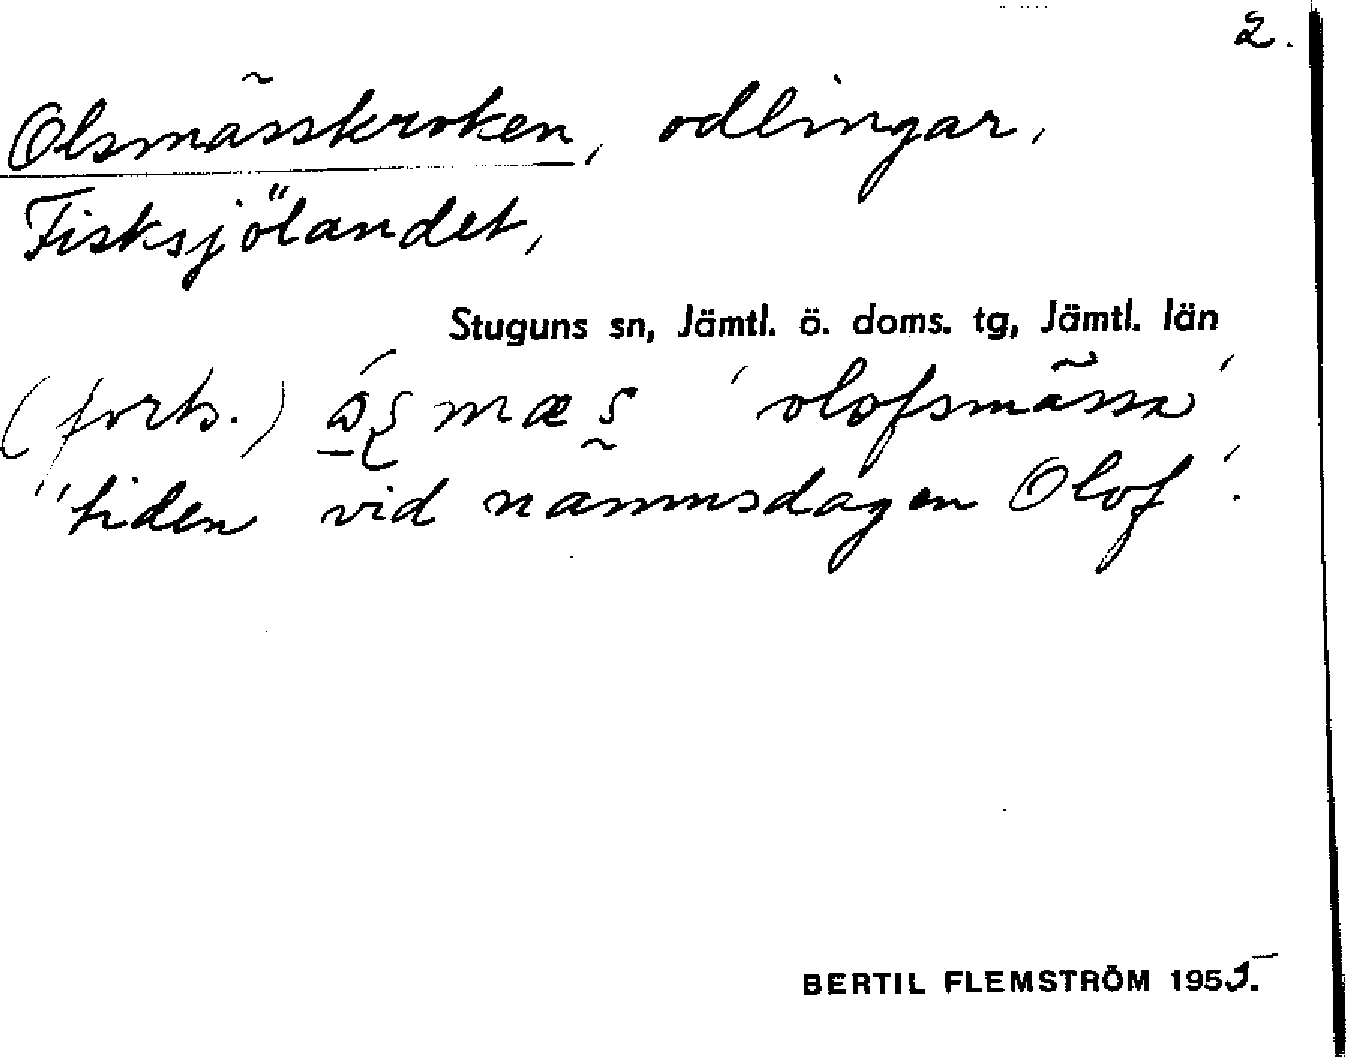 2.
Olsmässkroken, odlingar,
Fisksjölandet,
Stuguns sn, Jämtl. ö. doms. tg, Jämtl. län
(forts.) 'olofsmässa'
'tiden vid namnsdagen Olof'.
BERTIL FLEMSTRÖM 1955.